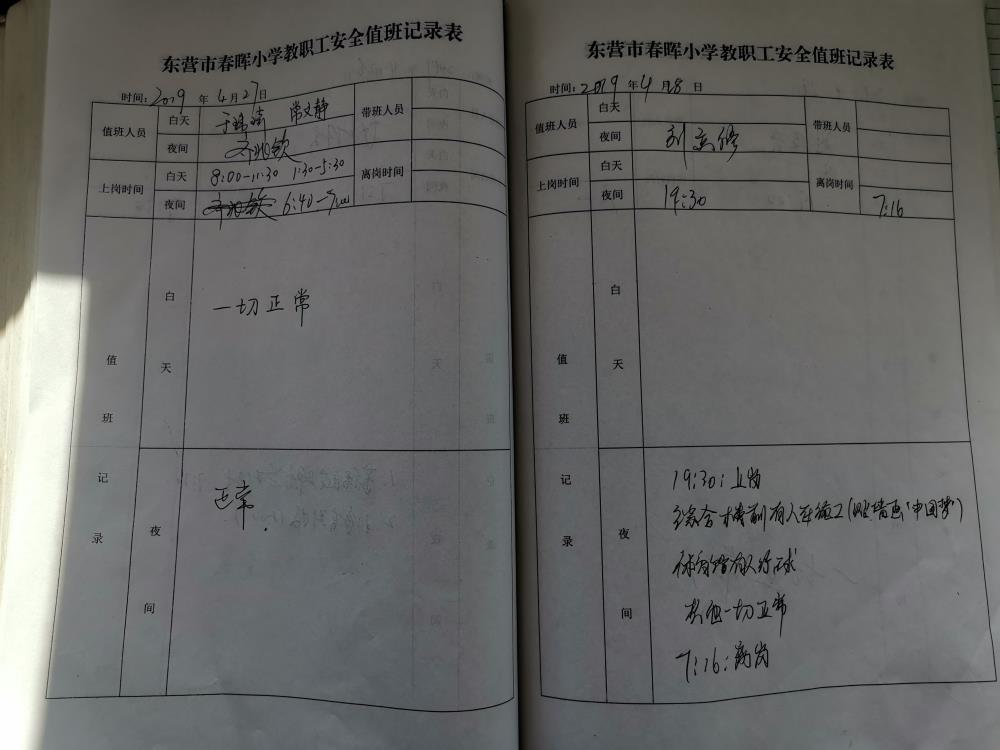 东营市春晖小学教职工安全值班记录表
时间:2019 年 4 月 27 日
值班人员 白天 常文静 带班人员
夜间
上岗时间 白天 8:00-11:30 1:30-5:30 离岗时间
夜间 6:40-7:00
值班记录
白天
一切正常
夜间
正常.
东营市春晖小学教职工安全值班记录表
时间:2019 年 4 月 8 日
值班人员 白天 带班人员
夜间 刘
上岗时间 白天 离岗时间
夜间 19:30 7:16
值班记录
白天
夜间
19:30:上岗
综合楼前有人在施工(喷墙画"中国梦")
体育馆有人打球
其他一切正常
7:16:离岗